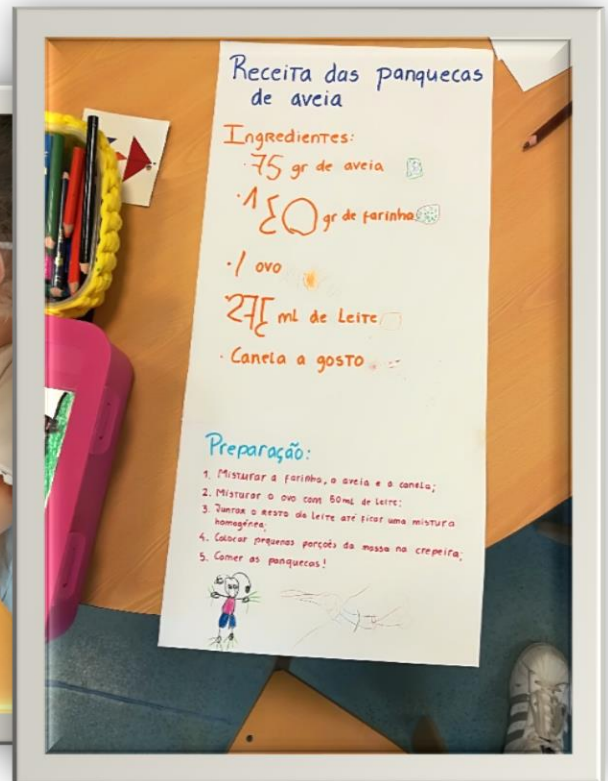 Receita das panquecas
de aveia
Ingredientes:
· 75 gr de aveia
· 150 gr de farinha
· 1 ovo
· 275 ml de Leite
· Canela a gosto
Preparação:
1. Misturar a farinha, a aveia e a canela;
2. Misturar o ovo com 50ml de leite;
3. Juntar o resto do leite até ficar uma mistura
homogénea;
4. Colocar pequenas porções da massa na crepeira;
5. Comer as panquecas!